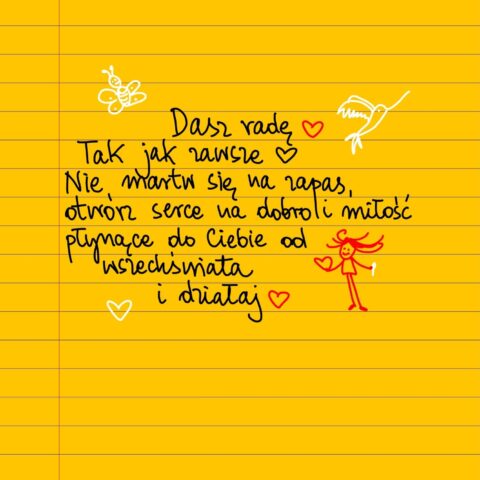 Dasz radę
Tak jak zawsze
Nie martw się na zapas,
otwórz serce na dobro i miłość
płynące do Ciebie od
wszechświata
i działaj